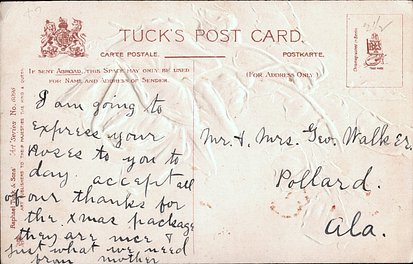 TUCK'S POST CARD.
CARTE POSTALE.
POSTKARTE.
IF SENT ABROAD, THIS SPACE MAY ONLY BE USED
FOR NAME AND ADDRESS OF SENDER.
(FOR ADDRESS ONLY.)
I am going to
express your
roses to you to
day. accept all
of our thanks for
the xmas package
they are nice &
just what we need
from mother
Mr. & Mrs. Geo. Walker.
Pollard.
Ala.
Raphael Tuck & Sons' "Art" Series No.